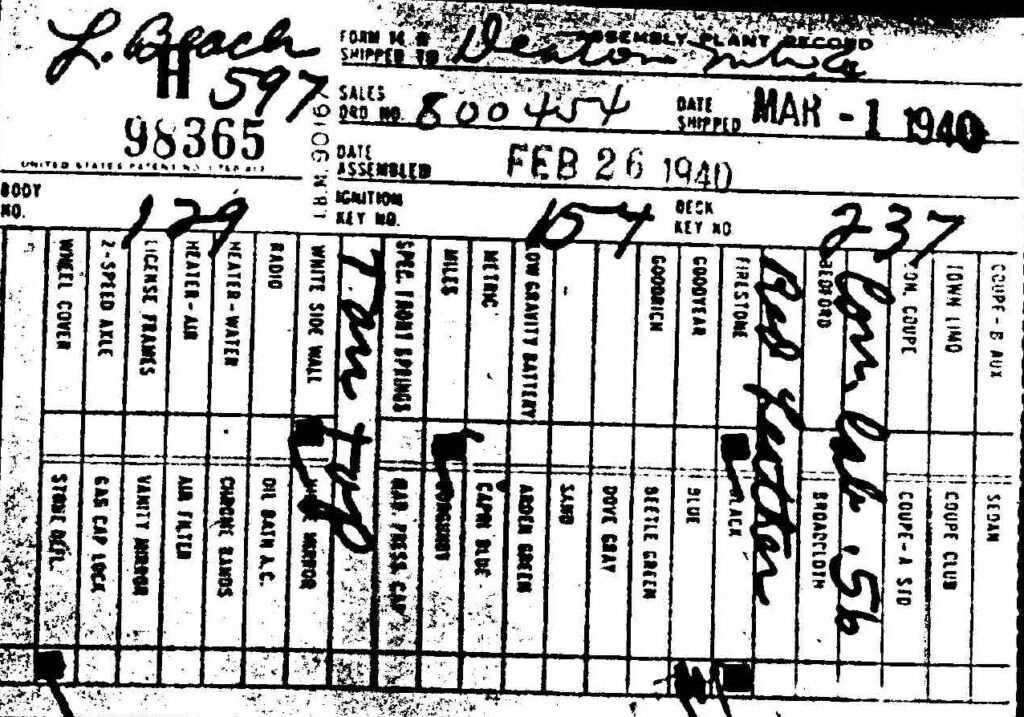 L. Beach
H 597
98365
FORM M.
SHIPPED TO
ASSEMBLY PLANT RECORD
SALES
ORD NO. 800454
DATE
SHIPPED MAR - 1 1940
DATE
ASSEMBLED FEB 26 1940
I.B.M. 90167
BODY
NO. 129
IGNITION
KEY NO. 154
DECK
KEY NO 237
WHEEL COVER
2-SPEED AXLE
LICENSE FRAMES
HEATER-AIR
HEATER-WATER
RADIO
WHITE SIDE WALL
Tan Top
SPEC. FRONT SPRINGS
MILES
METRIC
LOW GRAVITY BATTERY
GOODRICH
GOODYEAR
FIRESTONE
Red Leather
BEDFORD
Con. Cab. 56
CON. COUPE
TOWN LIMO
COUPE-B AUX
STONE DEFL.
GAS CAP LOCK
VANITY MIRROR
AIR FILTER
CHROME BANDS
OIL BATH A.C.
MIRROR
RAD. PRESS. CAP
CAPRI BLUE
ARDEN GREEN
SAND
DOVE GRAY
BEETLE GREEN
BLUE
BLACK
BROADCLOTH
COUPE-A STD
COUPE CLUB
SEDAN